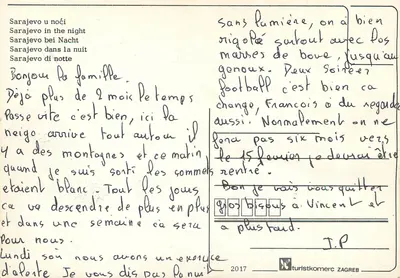 Sarajevo u noći
Sarajevo in the night
Sarajevo bei Nacht
Sarajevo dans la nuit
Sarajevo di notte
Bonjour la famille.
Déjà plus de 2 mois le temps
passe vite c'est bien, ici la
neige arrive tout autour il
y a des montagnes et ce matin
quand je suis sorti les sommets
etaient blanc. Tout les jours
ca va descendre de plus en plus
et dans une semaine ca sera
pour nous.
Lundi soir nous avons un exercice
d'alerte Je vous dis pas la nuit
sans lumière, on a bien
rigolé surtout avec les
masses de boue, jusqu'au
genoux. Deux soirées
football c'est bien ca
change, Francois a du regarder
aussi. Normalement on ne
fera pas six mois vers
le 15 février je devrai être
rentré.
Bon je vais vous quitter
gros bisous à Vincent et
a plus tard.
J.P
2017
turistkomerc ZAGREB